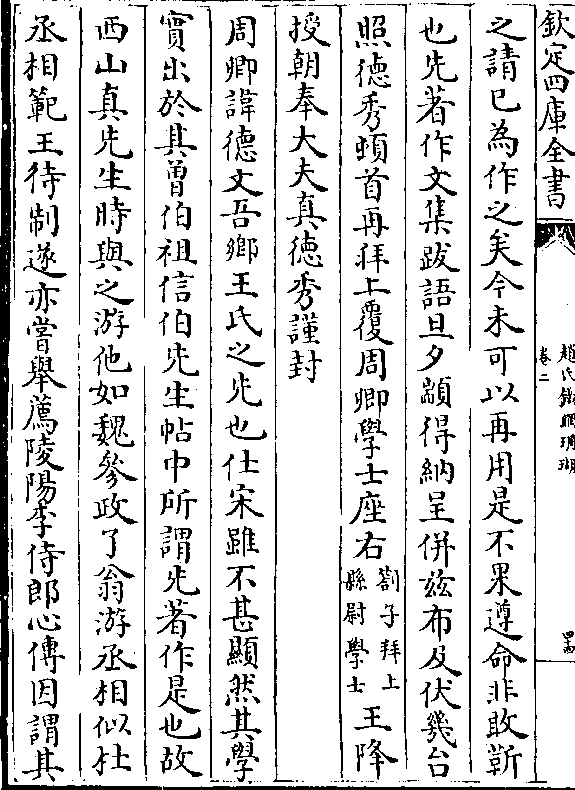 欽定四庫全書
趙氏鐵網珊瑚
卷二
之請已為作之矣今未可以再用是不果遵命非敢靳
也先著作文集跋語旦夕顓得納呈併茲布及伏幾台
照德秀頓首再拜上覆周卿學士座右
劄子拜上
縣尉學士
王降
授朝奉大夫真德秀謹封
周卿諱德文吾鄉王氏之先也仕宋雖不甚顯然其學
實出於其曾伯祖信伯先生帖中所謂先著作是也故
西山真先生時與之游他如魏參政了翁游丞相似杜
丞相範王待制遂亦嘗舉薦陵陽李侍郎心傳因謂其